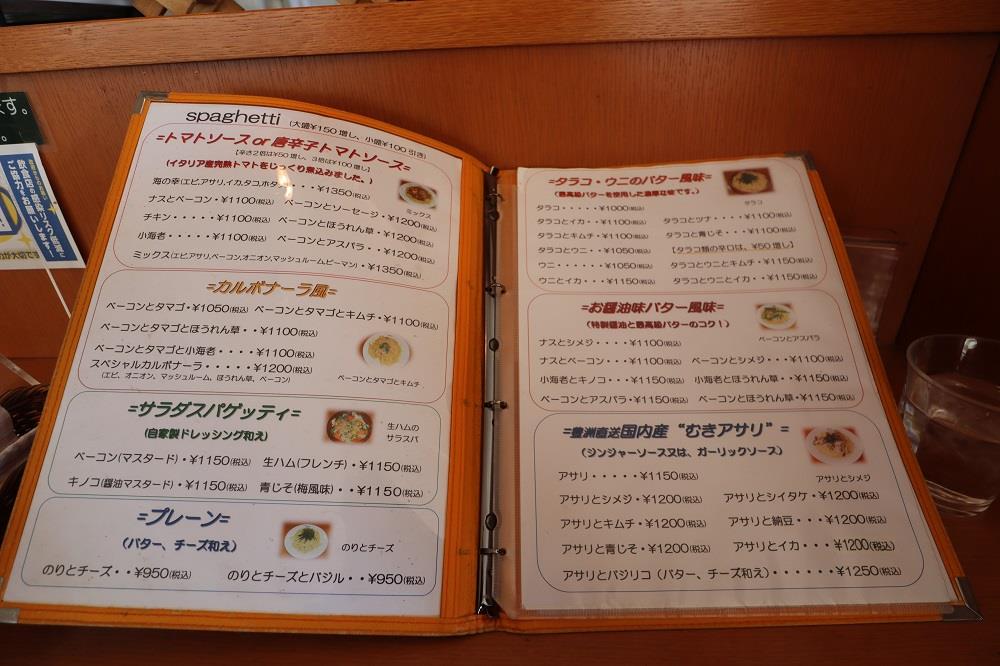 spaghetti (大盛¥150増し、小盛¥100引き)
=トマトソース or 唐辛子トマトソース=
【辛さ2倍は¥50増し、3倍は¥100増し】
(イタリア産完熟トマトをじっくり煮込みました。)
海の幸(エビ,アサリ,イカ,タコ,ホタ・・・・¥1350(税込)
ミックス
ナスとベーコン・¥1100(税込) ベーコンとソーセージ・¥1200(税込)
チキン・・・・・¥1100(税込) ベーコンとほうれん草・¥1200(税込)
小海老・・・・・¥1100(税込) ベーコンとアスパラ・・¥1200(税込)
ミックス(エビ,アサリ,ベーコン,オニオン,マッシュルーム,ピーマン)・¥1350(税込)
=カルボナーラ風=
ベーコンとタマゴ・¥1050(税込) ベーコンとタマゴとキムチ・¥1100(税込)
ベーコンとタマゴとほうれん草・・¥1100(税込)
ベーコンとタマゴと小海老・・・・¥1100(税込)
スペシャルカルボナーラ・・・・・¥1200(税込)
(エビ、オニオン、マッシュルーム、ほうれん草、ベーコン)
ベーコンとタマゴとキムチ
=サラダスパゲッティ=
(自家製ドレッシング和え)
生ハムの
サラスパ
ベーコン(マスタード)・¥1150(税込) 生ハム(フレンチ)・¥1150(税込)
キノコ(醤油マスタード)・¥1150(税込) 青じそ(梅風味)・・¥1150(税込)
=プレーン=
(バター、チーズ和え)
のりとチーズ
のりとチーズ・・¥950(税込) のりとチーズとバジル・・¥950(税込)
=タラコ・ウニのバター風味=
(最高級バターを使用した濃厚な味です。)
タラコ
タラコ・・・・・¥1000(税込)
タラコとイカ・・¥1100(税込) タラコとツナ・・・¥1100(税込)
タラコとキムチ・¥1100(税込) タラコと青じそ・・¥1100(税込)
タラコとウニ・・¥1050(税込) 【タラコ類の辛口は、¥50増し】
ウニ・・・・・・¥1050(税込) タラコとウニとキムチ・¥1150(税込)
ウニとイカ・・・¥1150(税込) タラコとウニとイカ・・¥1150(税込)
=お醤油味バター風味=
(特製醤油と最高級バターのコク!)
ベーコンとアスパラ
ナスとシメジ・・・・¥1100(税込)
ナスとベーコン・・・¥1100(税込) ベーコンとシメジ・・・¥1100(税込)
小海老とキノコ・・・¥1150(税込) 小海老とほうれん草・・¥1150(税込)
ベーコンとアスパラ・¥1150(税込) ベーコンとほうれん草・¥1150(税込)
=豊洲直送国内産“むきアサリ”=
(ジンジャーソース又は、ガーリックソース)
アサリとシメジ
アサリ・・・・・¥1150(税込)
アサリとシメジ・¥1200(税込) アサリとシイタケ・¥1200(税込)
アサリとキムチ・¥1200(税込) アサリと納豆・・・¥1200(税込)
アサリと青じそ・¥1200(税込) アサリとイカ・・・¥1200(税込)
アサリとバジリコ(バター、チーズ和え)・・・・・・¥1250(税込)
す。
飲食店の感染リスク低減に
ご協力をお願いします!